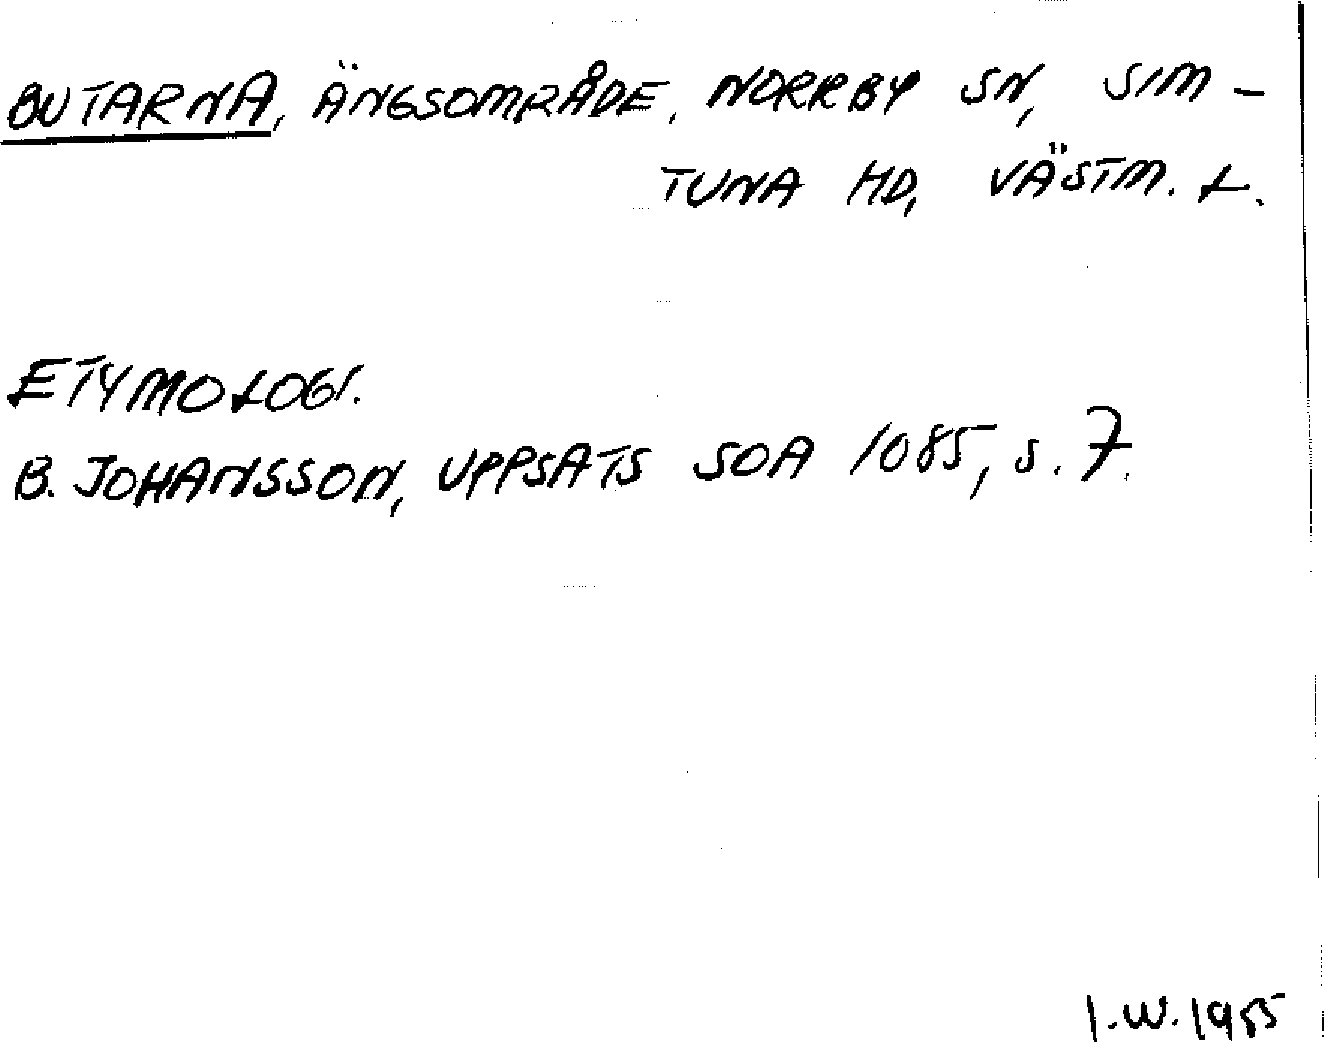 BUTARNA, ÄNGSOMRÅDE, NORRBY SN, SIM-
TUNA HD, VÄSTM. L.
ETYMOLOGI.
B. JOHANSSON, UPPSATS SOA 1085, s. 7.
I.W. 1985